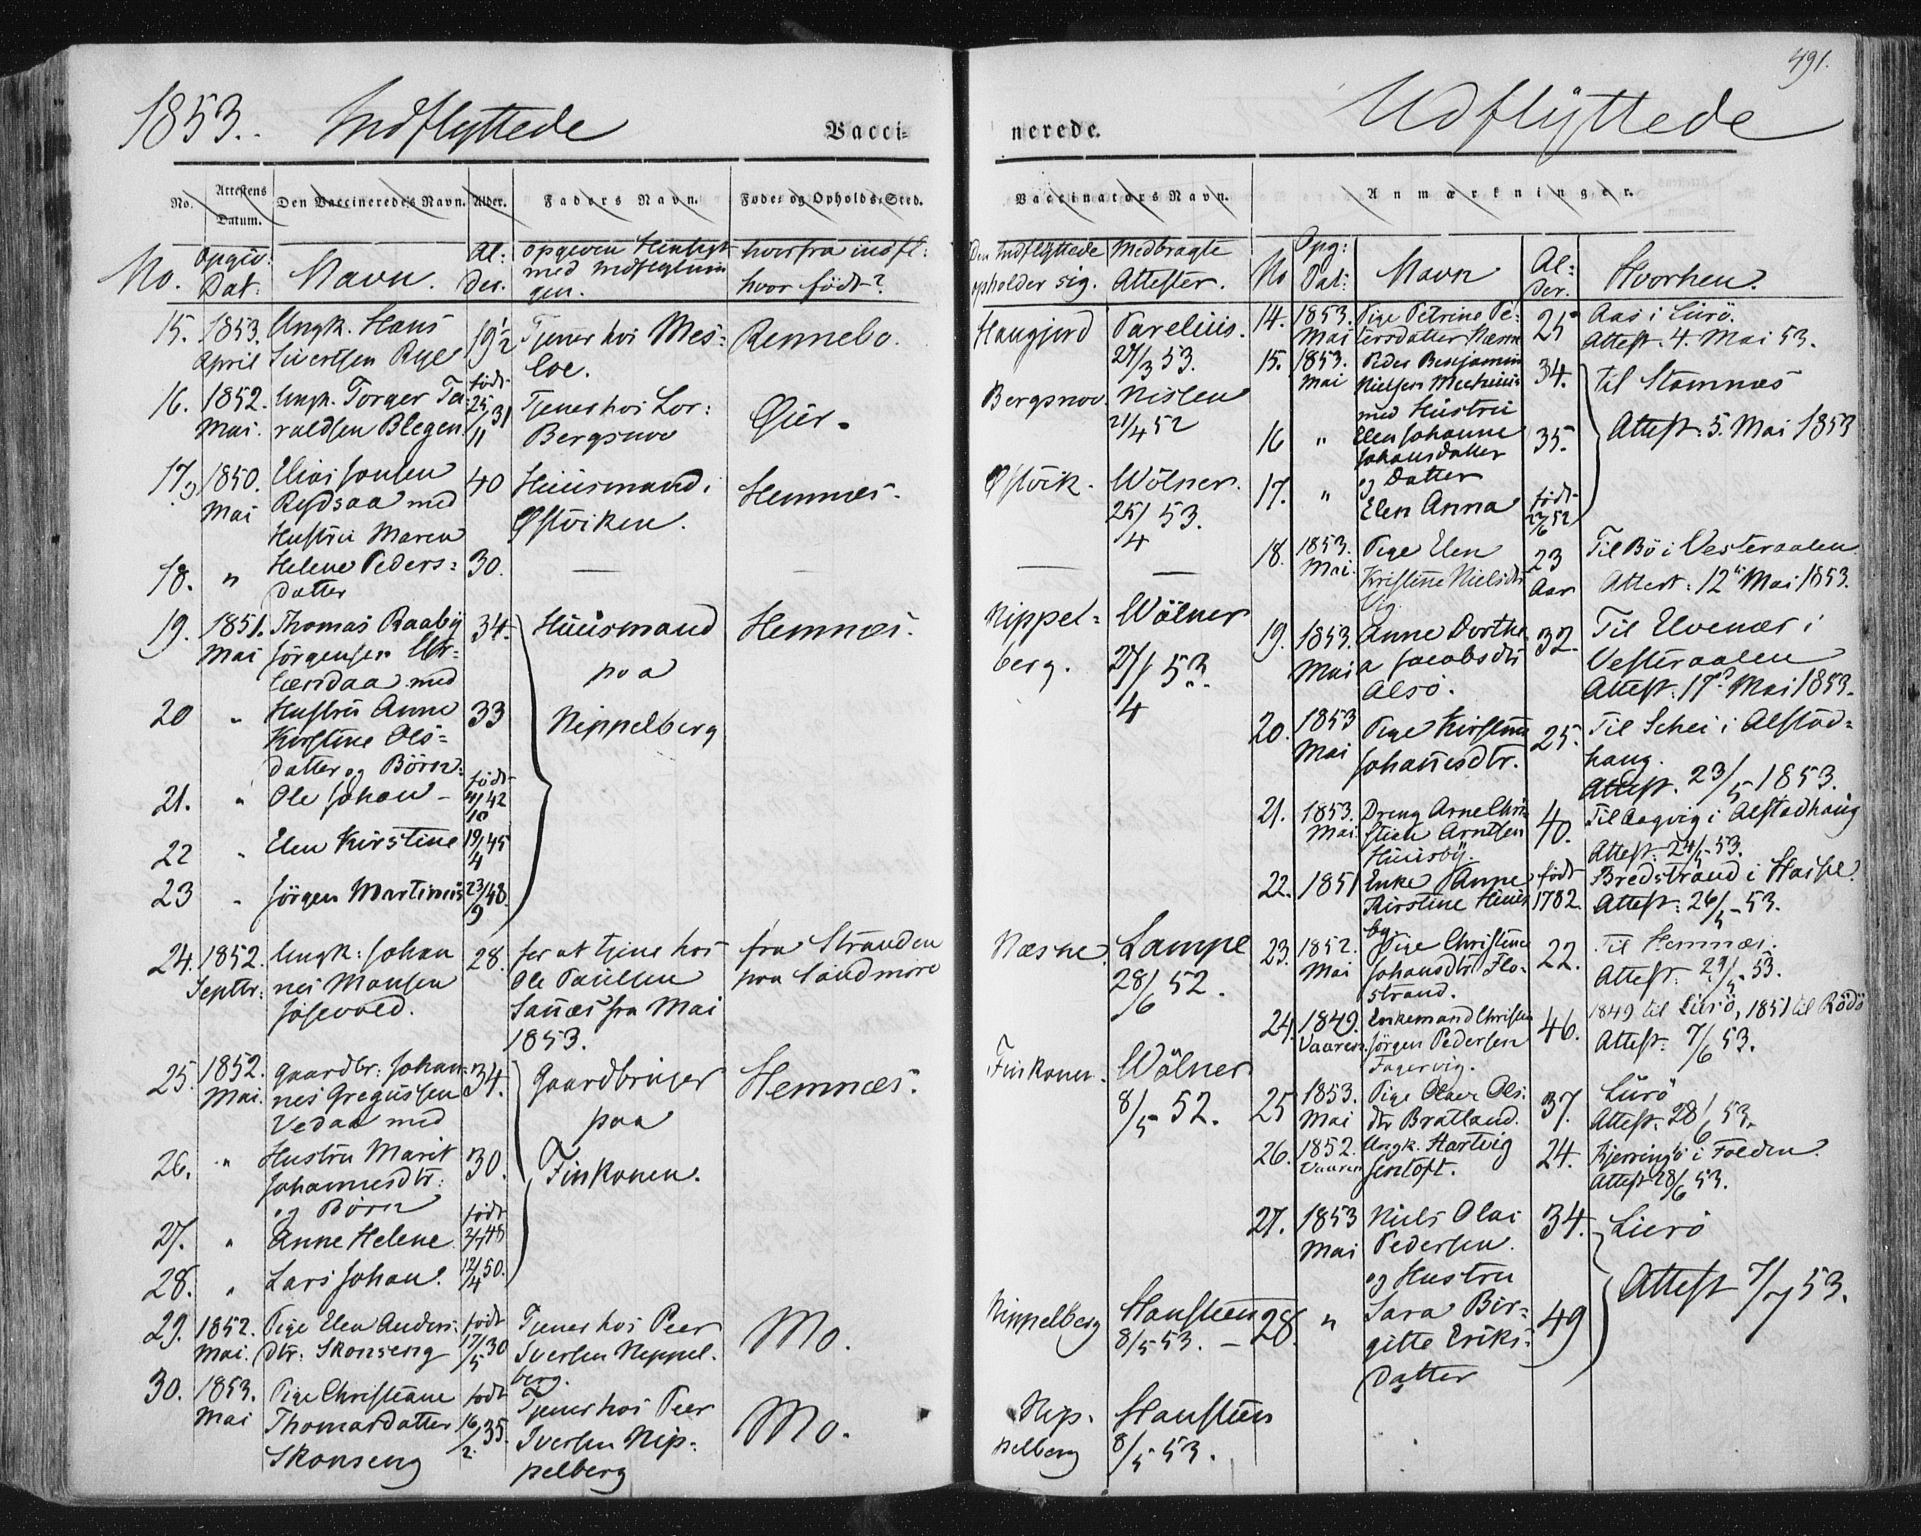 491.
1853. Indflyttede
Vacci-
nerede.
Udflyttede
No.
Attestens Datum.
Den Vaccineredes Navn.
Alder.
Faders Navn.
Føde- og Opholds-Sted.
Vaccinators Navn.
Anmærkninger.
No.
Opgiv: Dat:
Navn.
Al: der.
opgiven Hensigt
med Indflytnin
gen.
hvorfra indfl:
hvor født?
Den Indflyttede
opholder sig.
Medbragte
Attester.
15. 1853. Ungk. Hans 19½ Tjener hos Mes= Rennebo. Haugjord Parelius.
April Sivertsen Rye loe. 27/3 53.
16. 1852. Ungk. Torger Ta= født 25/11 31 Tjener hos Lor: Øier. Bergsnov. Nissen
Mai. raldsen Blegen Bergsnov 21/4 52
17. 1850. Elias Jonsen 40 Huusmand i Hemnes. Østvik. Wölner.
Mai Rydsaa med Østviken. 25/4 53.
Hustru Maren
18. " Helene Peders= 30. — — — —
datter
19. 1851. Thomas Raaby 34. Huusmand Hemnæs. Nippel= Wölner
Mai Jörgensen
med paa berg. 27/4 53.
20 " Hustru Anne 33 Nippelberg
Kirstine Ols=
datter og Börn:
21. " Ole Johan – født 4/10 42
22 " Elen Kirstine 19/4 45
23 " Jörgen Martinus 23/9 48.
24. 1852. Ungk: Johan 28. for at tjene hos fra Stranden Næsne. Lampe
Septbr: nes Monsen Ole Paulsen paa Söndmöre 28/6 52.
Josevold. Sanæs fra Mai
1853.
25. 1852. Gaardbr: Johan= 34. Gaardbruger Hemnæs. Finkonen. Wölner
Mai. nes Gregussen paa 8/5 52.
Vedaa med
26. " Hustru Marit 30. Finkonen.
Johannesdtr:
og Børn
27. " Anne Helene født 3/4 48
28. " Lars Johan. 12/4 50.
29. 1852. Pige Elen Anders: født 17/5 30 Tjener hos Peer Mo. Nippelberg Hansteen
Mai. dtr: Skonseng Iversen Neppel. 8/5 53. –
berg.
30. 1853. Pige Christiane født 16/2 35. Tjener hos Peer Mo. Nip- Hansteen
Mai Thomasdatter Iversen Nip= pelberg 8/5 53.
Skonseng pelberg
No
Opg: Dat:
Navn
Al: der.
Hvorhen.
14. 1853. Pige Petrine Pe= 25 Aas i Lurö.
Mai tersdatter Næsne Attest. 4. Mai 53.
15. 1853. Peder Benjamin 34. til Stamnæs
Mai Nielsen
med Hustru Attest: 5. Mai 1853
16 " Elen Johanne 35.
Johansdatter
og Datter
17. " Elen Anna født 27/6 52
18. 1853. Pige Elen 23 Til Bö i Vesteraalen
Mai. Kristine Nielsdtr Aar Attest: 12te Mai 1853.
Vig.
19. 1853. Anne Dorthe 32. Til Elvenæs i
Mai a Jacobsdtr Vesteraalen
Alsö. Attest. 17de Mai 1853.
20. 1853 Pige Kirstine 25. Til Schei i Alstad=
Mai Johannesdtr. haug.
Attest. 23/5 1853.
21. 1853. Dreng Arne Chri= 40. Til Aagvig i Alstadhaug
Mai stian Arntsen Attest: 24/5 53.
Huusby.
22. 1851 Enke Anne født Bredstrand i Hassel.
Kirstine Huus 1782. Attest: 26/5 – 53.
by.
23. 1852. Pige Christine 22. Til Hemnæs.
Mai Johansdtr Flo= Attest: 29/5 53.
strand.
24. 1849. Enkemand Christen 46. 1849 til Lurö, 1851 til Rödö
Vaaren. Jörgen Pedersen Attest: 7/6 53.
Fagervig.
25 1853. Pige Olava Ols: 37. Lurö
Mai dtr Bratland. Attest: 28/6 53.
26. 1852. Ungk. Hartvig 24. Kjerringö i Folden.
Vaaren Jentoft. Attest 28/6 53.
27. 1853 Niels Olai 34. Lurö
Mai Pedersen.
og Hustru Attest 7/7 53.
28. " Sara Bir= 49
gitte Eriks=
datter